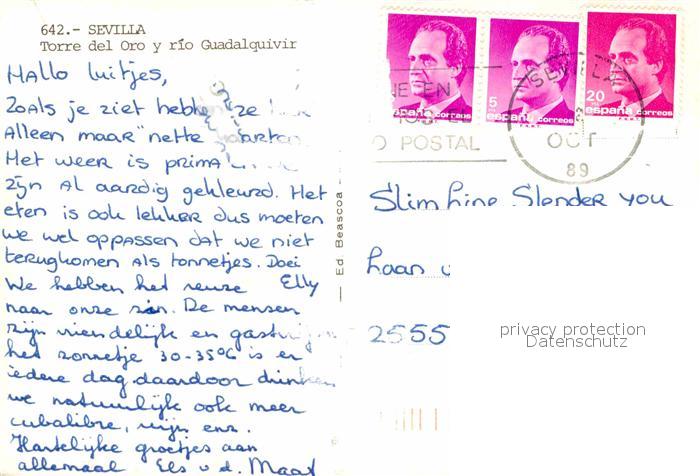 642.- SEVILLA
Torre del Oro y río Guadalquivir
Hallo luitjes,
Zoals je ziet hebben ze hier
Alleen maar "nette kaarten
Het weer is prima
zijn al aardig gekleurd. Het
eten is ook lekker dus moeten
we wel oppassen dat we niet
terugkomen als tonnetjes. Doei
Elly
We hebben het reuze
naar onze zin. De mensen
zijn vriendelijk en gastvrij
het zonnetje 30-35°C is er
iedere dag daardoor drinken
we natuurlijk ook meer
cubalibre, wijn enz.
Hartelijke groetjes aan
allemaal Els v.d. Maat
Ed. Beascoa
5
españa correos
5
españa correos
20
españa correos
POSTAL
SEVILLA
OCT
89
Slim Line Slender you
Laan v
2555
privacy protection
Datenschutz